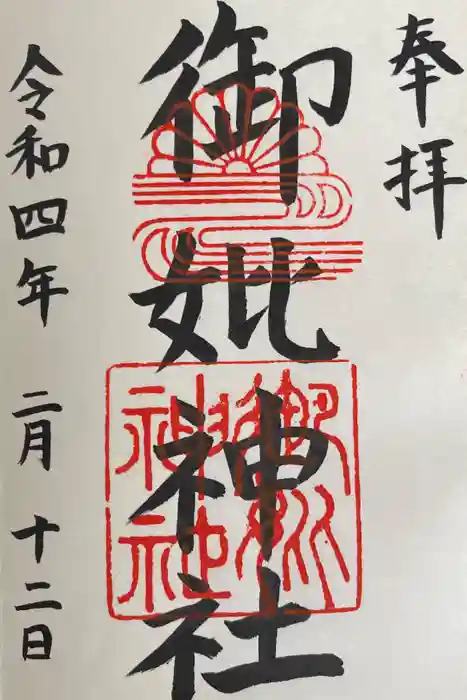 奉拝
御妣神社
令和四年 二月 十二日
御妣神社